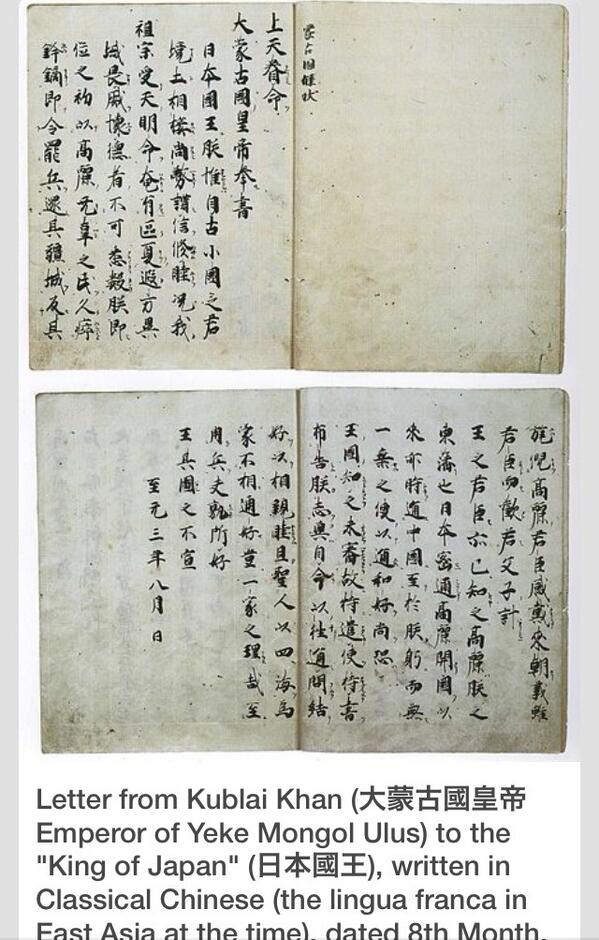 蒙古国牒状
上天眷命
大蒙古國皇帝奉書
日本國王朕惟自古小國之君
境土相接尚務講信修睦況我
祖宗受天明命奄有區夏遐方異
域畏威懷德者不可悉數朕即
位之初以高麗无辜之民久瘁
鋒鏑即令罷兵還其疆域反其
旄倪高麗君臣感戴來朝義雖
君臣而歡若父子計
王之君臣亦已知之高麗朕之
東藩也日本密邇高麗開國以
來亦時通中國至於朕躬而無
一乘之使以通和好尚恐
王國知之未審故特遣使持書
布告朕志冀自今以往通問結
好以相親睦且聖人以四海為
家不相通好豈一家之理哉至
用兵夫孰所好
王其圖之不宣
至元三年八月 日
Letter from Kublai Khan (大蒙古國皇帝
Emperor of Yeke Mongol Ulus) to the
"King of Japan" (日本國王), written in
Classical Chinese (the lingua franca in
East Asia at the time), dated 8th Month,